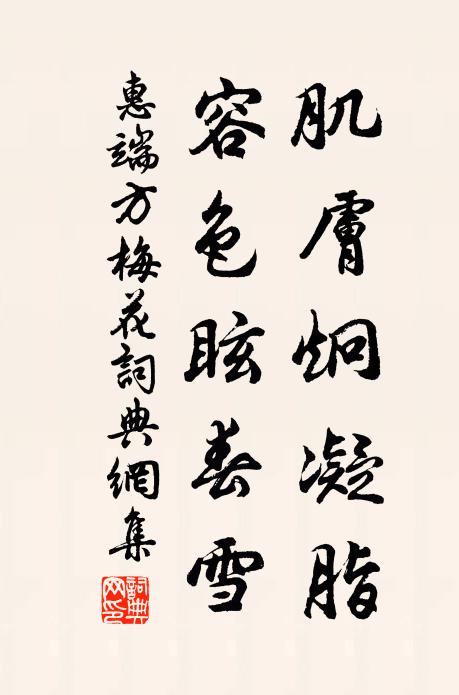 肌膚炯凝脂
容色眩春雪
惠端方梅花詞典網集
詞典網印